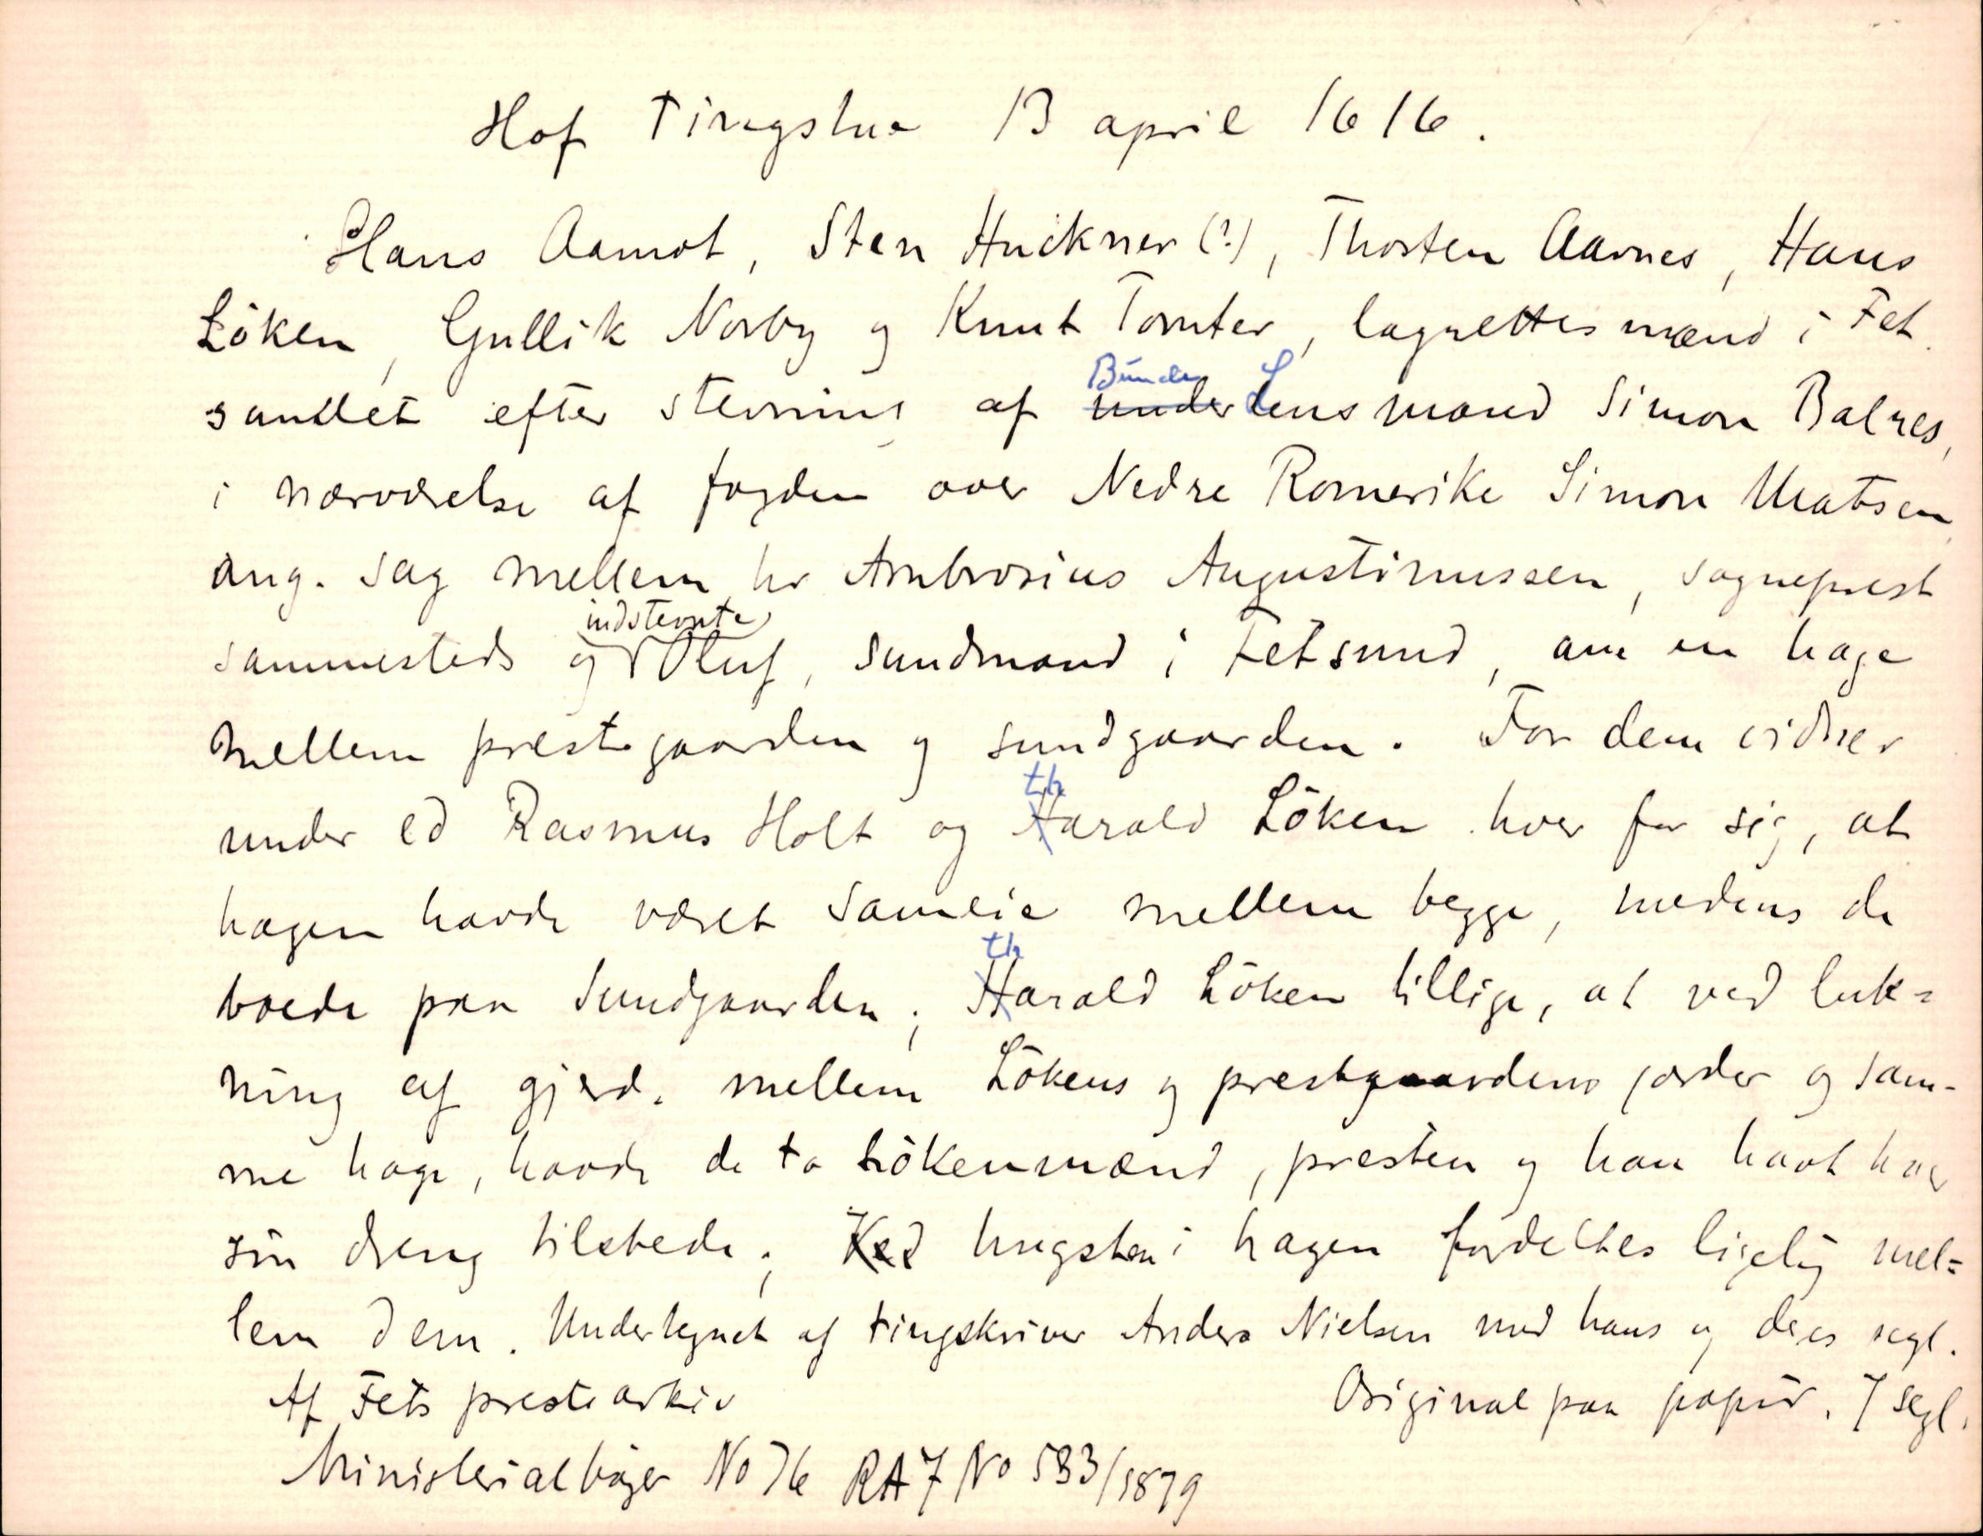 Hof Tingstue 13 april 1616.
Hans Aamot, Sten Huckner (?), Thorsten Aarnes, Hans
Löken, Gullik Norby og Knut Tomter, lagrettesmænd i Fet
samlet efter stevning af Bunde Lensmand Simon Balnes,
i nærværelse af fogden over Nedre Romerike Simon Matsen
ang. sag mellem hr Ambrosius Augustinussen, sogneprest
sammesteds og indstevnte Oluf, sundmand i Fetsund, om en hage
mellem prestegaarden og sundgaarden. For dem vidner
under ed Rasmus Holt og tharald Löken hver for sig, at
hagen havde været sameie mellem begge, medens de
boede paa Sundgaarden; tharald Löken tillige, at ved luk=
ning af gjerde mellem Lökens og prestgaardens jorder og sam-
me hage, havde de to Lökenmænd, presten og han havt hver
sin dreng tilstede; Ved hugsten i hagen fordeltes ligelig mel=
lem dem. Undertegnet af tingskriver Anders Nielsen med hans og deres segl.
Af Fets prestearkiv Original paa papir. 7 segl.
Ministerialbøger No 76 RA 7 No 533/1879